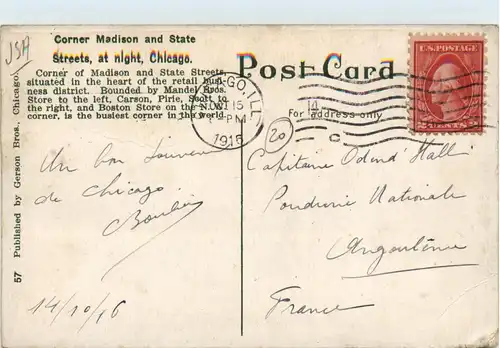 JSA
Corner Madison and State
Streets, at night, Chicago.
Corner of Madison and State Streets,
situated in the heart of the retail busi-
ness district. Bounded by Mandel Bros.
Store to the left, Carson, Pirie, Scott to
the right, and Boston Store on the N. W.
corner, is the busiest corner in the world.
57 Published by Gerson Bros., Chicago.
Un bon souvenir
de Chicago
14/10/16
Post Card
For address only
CHICAGO, ILL.
15
PM
1916
14
C
20
U.S. POSTAGE
2 CENTS 2
Capitaine
Poudrerie Nationale
Angoulême
France